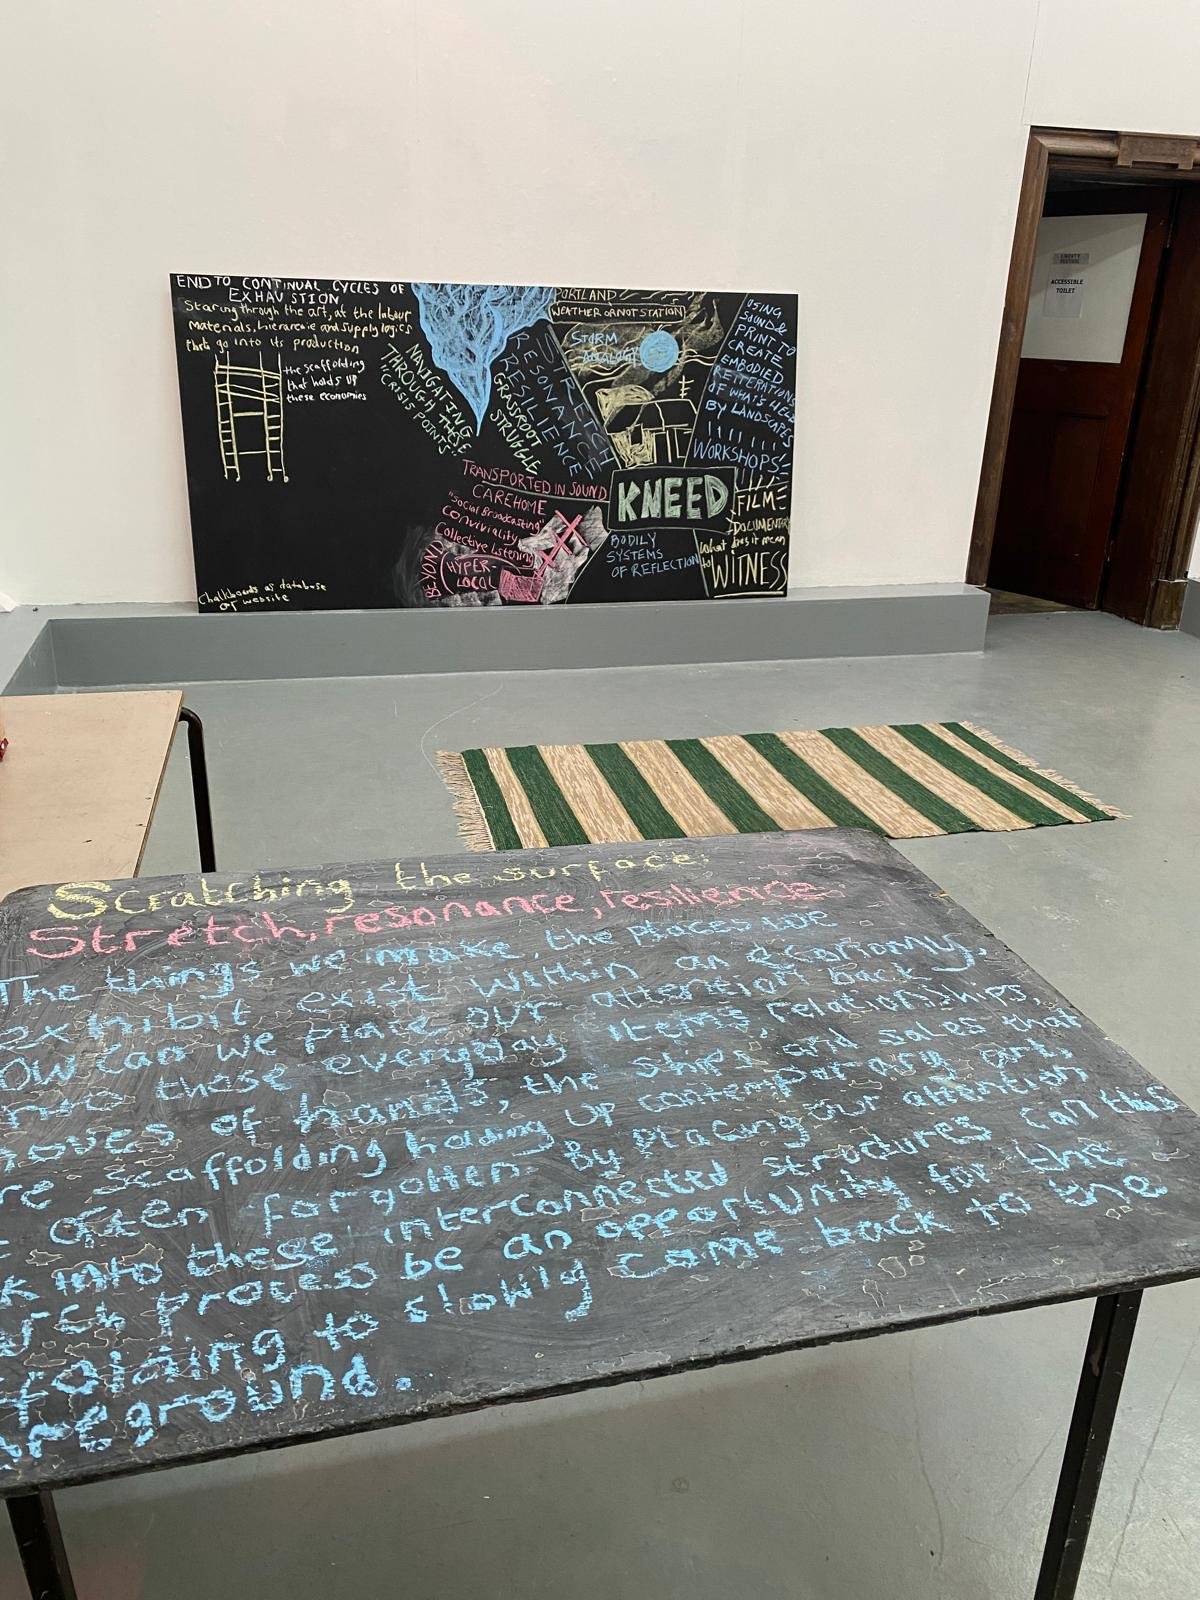 END TO CONTINUAL CYCLES OF
EXHAUSTION
Staring through the art, at the labour
materials, hierarchie and supply logics
that go into its production
the scaffolding
that holds up
these economies
Chalkboards as database
or website
NAVIGATING
THROUGH THESE
"CRISIS POINTS"
GRASSROOT
STRUGGLE
STRETCH
RESONANCE
RESILIENCE
PORTLAND
WEATHER OR NOT STATION
STORM
USING
SOUND &
PRINT TO
CREATE
EMBODIED
OF WHAT'S HELD
BY LANDSCAPES
WORKSHOPS
TRANSPORTED IN SOUND
CAREHOME
"Social Broadcasting"
Conviviality
Collective listening
BEYOND
HYPER-
LOCAL
KNEED
BODILY
SYSTEMS
OF REFLECTION
FILM
DOCUMENTARY
What does it mean
to
WITNESS
ACCESSIBLE
TOILET
Scratching the surface:
Stretch, resonance, resilience
The things we make, the places we
exhibit exist within an economy.
OW can we place our attention back
nto these everyday items, relationships,
hands, the ships and sales that
re scaffolding holding up contemporary art,
often forgotten. By placing our attention
k into these interconnected structures can this
process be an opportunity for the
to slowly come back to the
reground.